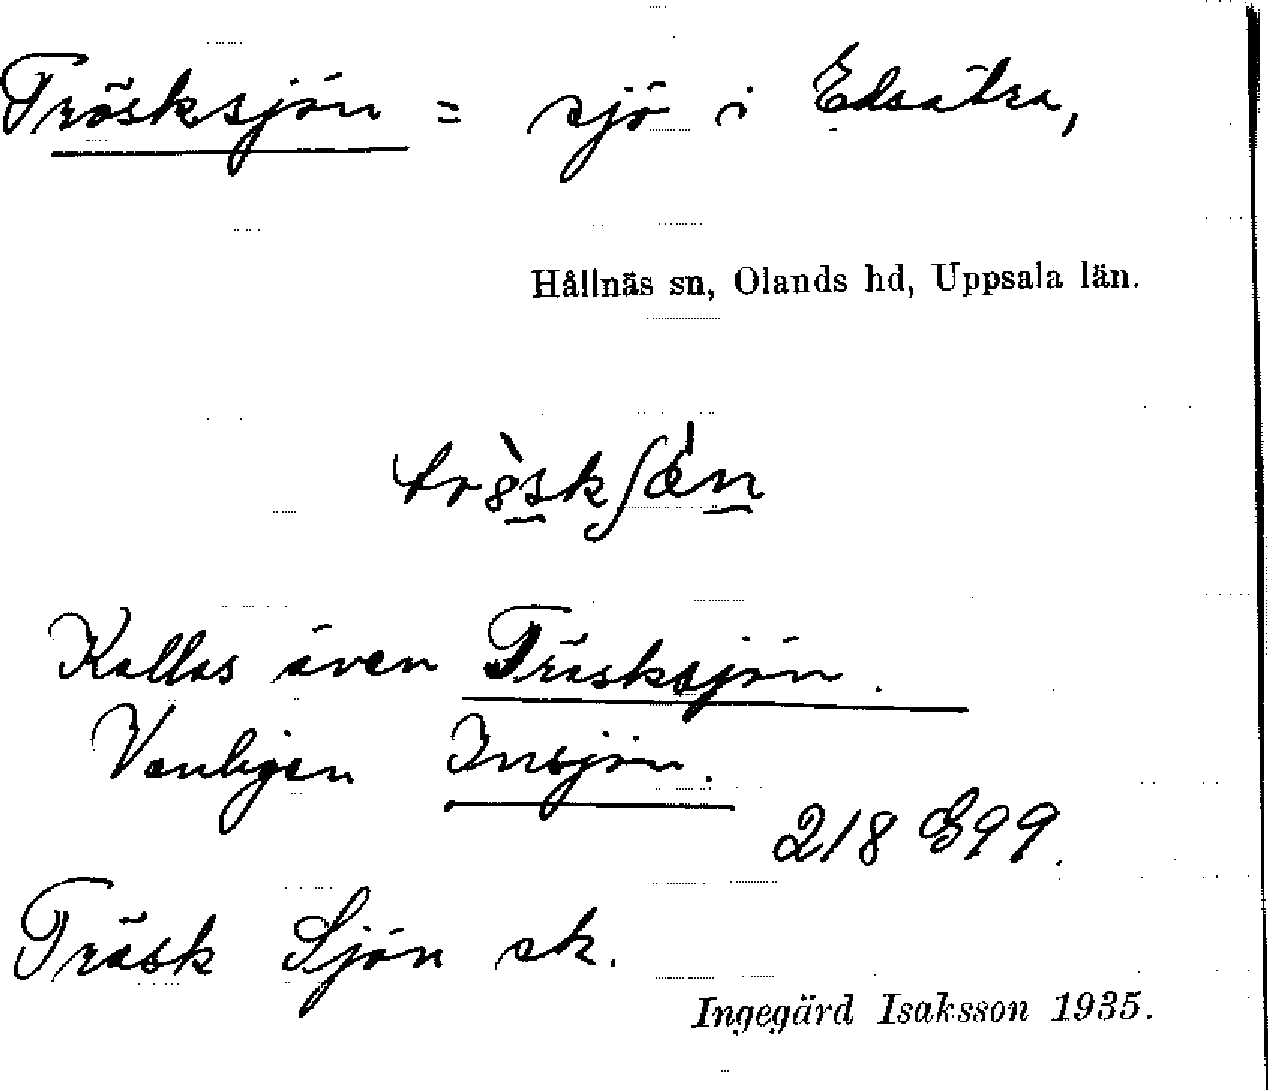 Trösksjön = sjö i Edsätra,
Hållnäs sn, Olands hd, Uppsala län.
Kallas även Träsksjön.
Vanligen Insjön.
218 E99.
Träsk Sjön sk.
Ingegärd Isaksson 1935.